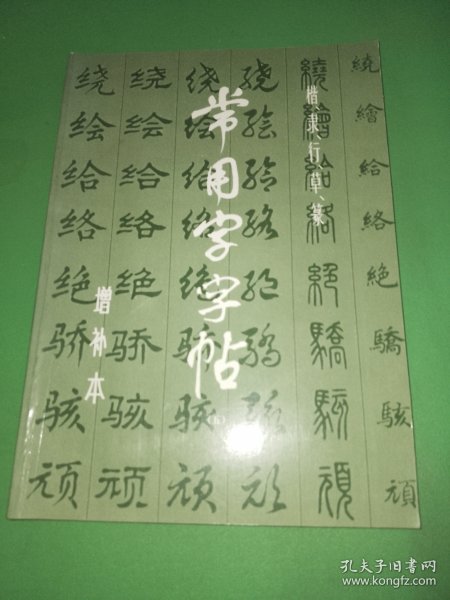 楷、隶、行、草、篆
常用字字帖
增补本
繞繪給絡絶驕駭頑
繞繪給絡絶驕駭頑
绕绘给络绝骄骇顽
绕绘给络绝骄骇顽
绕绘给络绝骄骇顽
绕绘给络绝骄骇顽
孔夫子旧书网
www.kongfz.com